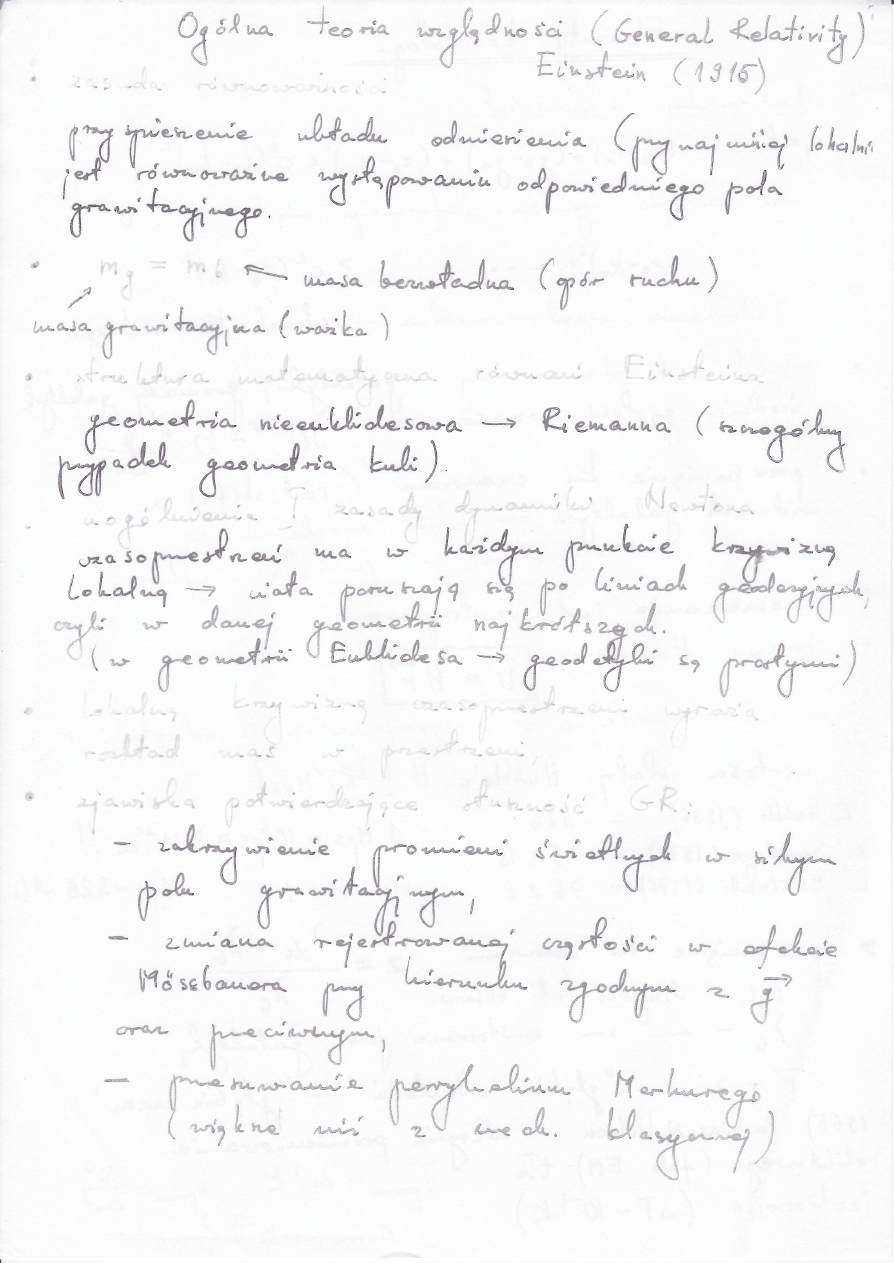 Ogólna teoria względności (General Relativity)
Einstein (1915)
• zasada równoważności
przyspieszenie układu odniesienia (przynajmniej lokalnie
jest równoważne występowaniu odpowiedniego pola
grawitacyjnego.
• m_g = m_b ← masa bezwładna (opór ruchu)
masa grawitacyjna (ważka)
• struktura matematyczna równań Einsteina
geometria nieeuklidesowa → Riemanna (szczególny
przypadek geometria kuli).
• uogólnienie I zasady dynamiki Newtona
czasoprzestrzeń ma w każdym punkcie krzywiznę
lokalną → ciała poruszają się po liniach geodezyjnych,
czyli w danej geometrii najkrótszych.
(w geometrii Euklidesa → geodetyki są prostymi)
• lokalną krzywiznę czasoprzestrzeni wyraża
rozkład mas w przestrzeni
• zjawiska potwierdzające słuszność GR
– zakrzywienie promieni świetlnych w silnym
polu grawitacyjnym,
– zmiana rejestrowanej częstości w efekcie
Mössbauera przy kierunku zgodnym z g⃗
oraz przeciwnym,
– przesuwanie peryhelium Merkurego
(większe niż z mech. klasycznej)